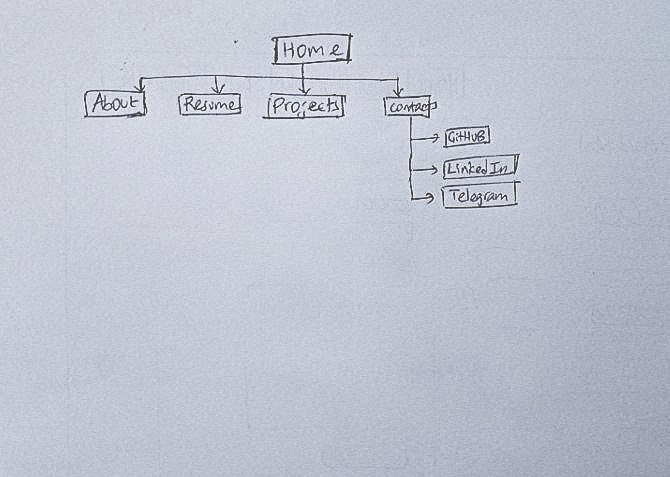 Home
About Resume Projects Contact
GitHUB
Linked In
Telegram